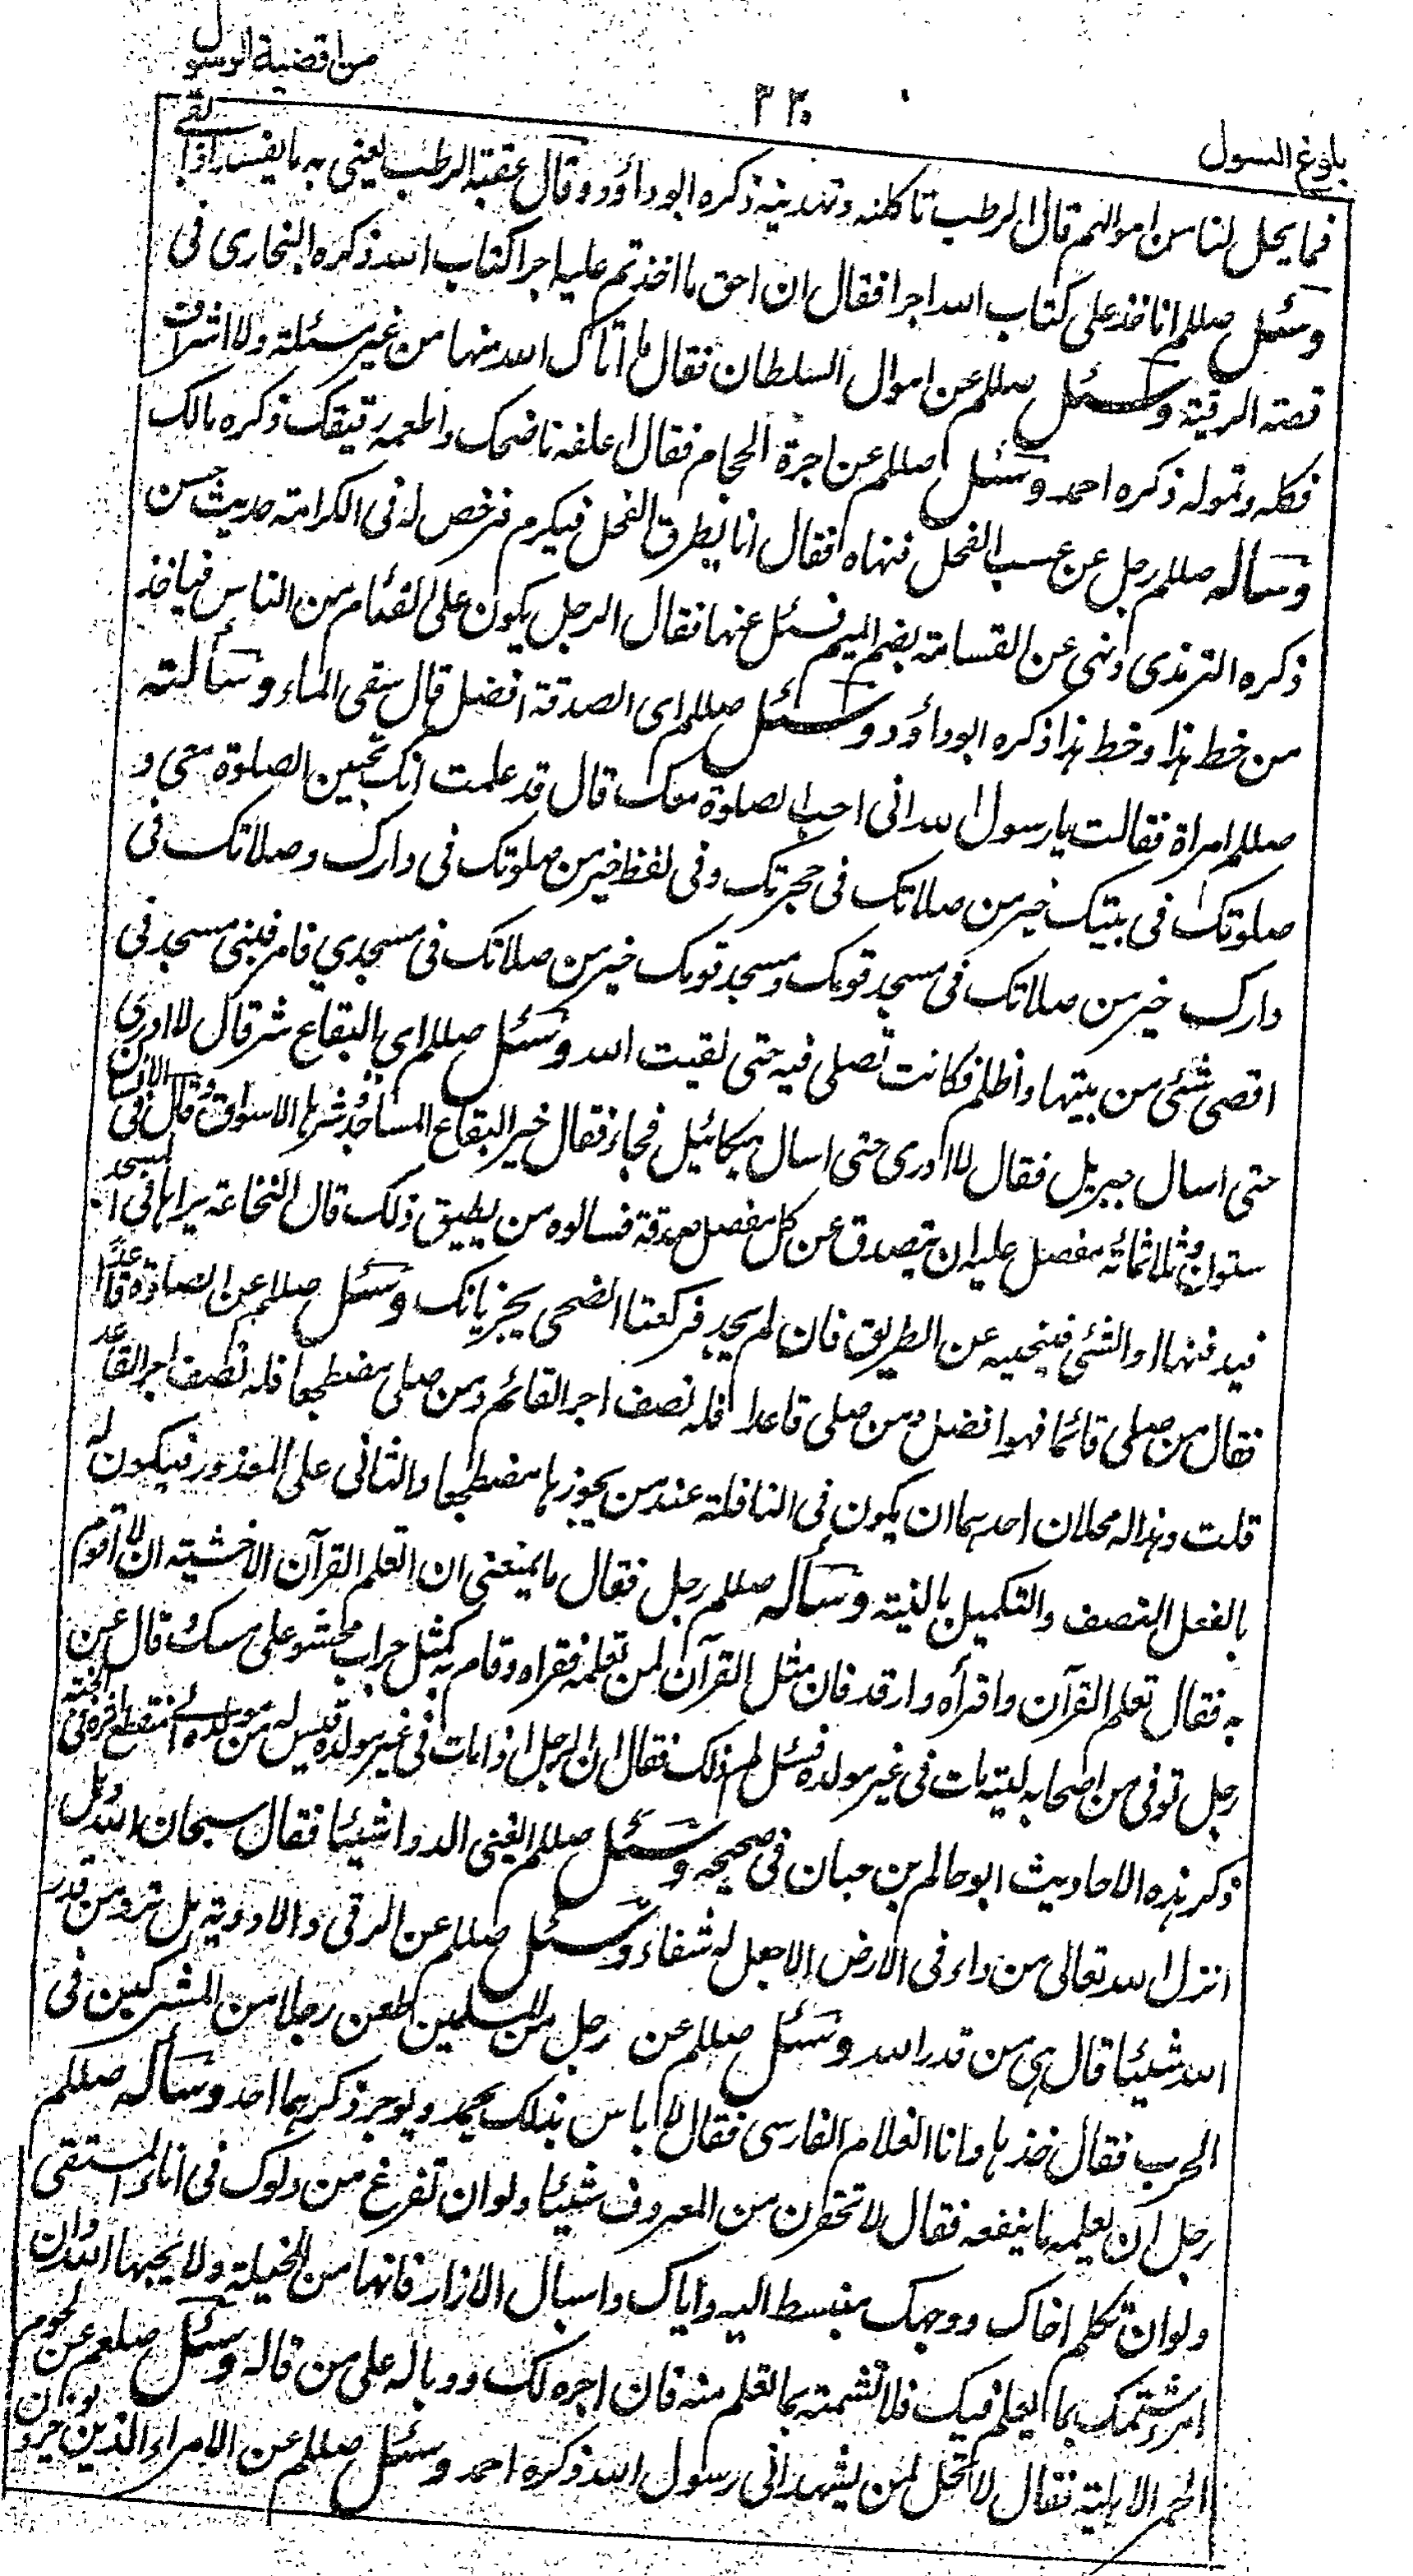 من اقضية الرسول
٣٢٠
بلوغ السول
فما يحل لنا من اموالهم قال الرطب تاكلنه وتهدينه ذكره ابوداؤد وقال عقبة الرطب يعنى به ما يفسد اذا بقى
وسئل صللم انا ناخذ على كتاب الله اجرا فقال ان احق ما اخذتم عليه اجرا كتاب الله ذكره البخارى فى
قصته الرقية وسئل صللم عن اموال السلطان فقال ما اتاك الله منها من غير مسئلة ولا اشراف
فكله وتموله ذكره احمد وسئل صللم عن اجرة الحجام فقال اعلفه ناضحك واطعمه رقيقك ذكره مالك
وسأله صللم رجل عن عسب الفحل فنهاه فقال انا نطرق الفحل فيكرم فرخص له فى الكرامة حديث حسن
ذكره الترمذى ونهى عن القسامة بضم الميم فسئل عنها فقال الرجل يكون على الفئام من الناس فياخذ
من خط هذا وخط هذا ذكره ابوداؤد وسئل صللم اى الصدقة افضل قال سقى الماء وسألته
صللم امراة فقالت يا رسول الله انى احب الصلوة معك قال قد علمت انك تحبين الصلوة معى و
صلوتك فى بيتك خير من صلاتك فى حجرتك وفى لفظ خير من صلوتك فى دارك وصلاتك فى
دارك خير من صلاتك فى مسجد قومك ومسجد قومك خير من صلاتك فى مسجدي فامر فبنى مسجد فى
اقصى شئى من بيتها واظلم فكانت تصلى فيه حتى لقيت الله وسئل صللم اي البقاع شر قال لا ادرى
حتى اسال جبريل فقال لا ادرى حتى اسال ميكائيل فجاء فقال خير البقاع المساجد وشرها الاسواق وقال فى الانسان
ستون وثلاثمائة مفصل عليه ان يتصدق عن كل مفصل صدقة فسالوه من يطيق ذلك قال النخاعة يراها فى المسجد
فيدفنها او الشئى فينحيه عن الطريق فان لم يجد فركعتا الضحى يجزيانك وسئل صللم عن الصلوة قاعدا
فقال من صلى قائما فهو افضل ومن صلى قاعدا فله نصف اجر القائم ومن صلى مضطجعا فله نصف اجر القاعد
قلت وهذا له محلان احدهما ان يكون فى النافلة عند من يجوزها مضطجعا والثانى على المعذور فيكون له
بالفعل النصف والتكميل بالنية وسأله صللم رجل فقال ما يمنعنى ان اتعلم القرآن الا خشية ان لا اقوم
به فقال تعلم القرآن واقرأه وارقد فان مثل القرآن لمن تعلمه فقراه وقام به كمثل جراب محشو على مسك وقال عن
رجل توفى من اصحابه ليته مات فى غير مولده فسئل لم ذلك فقال ان الرجل اذا مات فى غير مولده قيس له من مولده الى منقطع اثره فى الجنة
ذكر هذه الاحاديث ابو حاتم بن حبان فى صحيحه وسئل صللم ايغنى الدواء شيئا فقال سبحان الله وهل
انزل الله تعالى من داء فى الارض الا جعل له شفاء وسئل صللم عن الرقى والادوية هل ترد من قدر
الله شيئا قال هى من قدر الله وسئل صللم عن رجل من المسلمين طعن رجلا من المشركين فى
الحرب فقال خذها وانا الغلام الفارسى فقال لا باس بذلك يحمد ويوجر ذكرهما احمد وسأله صللم
رجل ان يعلمه ما ينفعه فقال لا تحقرن من المعروف شيئا ولو ان تفرغ من دلوك فى اناء المستقى
ولو ان تكلم اخاك ووجهك منبسط اليه واياك واسبال الازار فانها من المخيلة ولا يحبها الله وان
امرؤ شتمك بما يعلم فيك فلا تشتمه بما تعلم منه فان اجره لك ووباله على من قاله وسئل صلعم عن لحوم
الحمر الاهلية فقال لا تحل لمن يشهد انى رسول الله ذكره احمد وسئل صللم عن الامراء الذين يوخرون